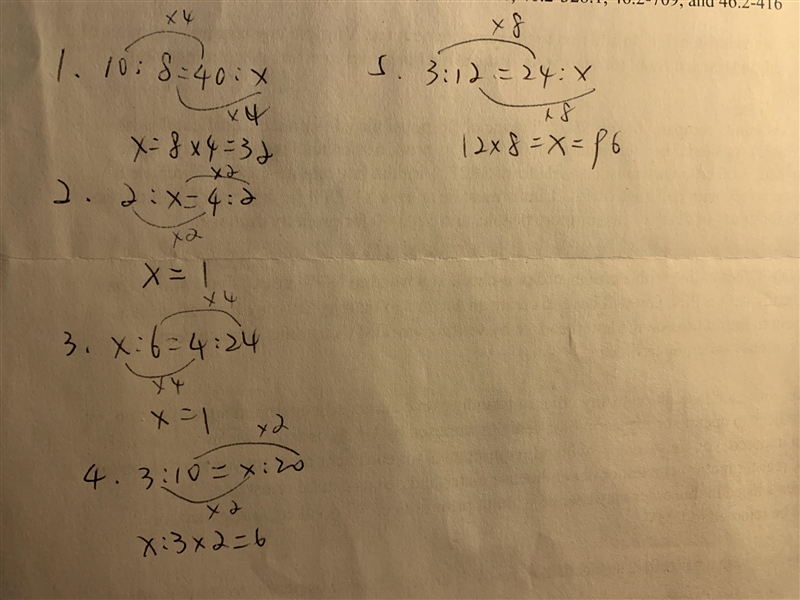 46.2-416
×4
1. 10:8=40:x
×4
x=8×4=32
×2
2. 2:x=4:2
×2
x=1
×4
3. x:6=4:24
×4
x=1
×2
4. 3:10=x:20
×2
x:3×2=6
×8
5. 3:12=24:x
×8
12×8=x=96